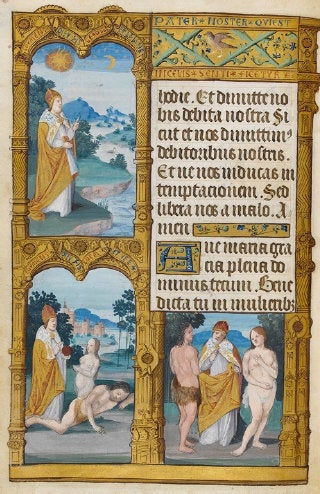 PATER NOSTER QVI EST
IN CELIS SANTI FICETVR
hodie. Et dimitte no
bis debita nostra Si
cut et nos dimittim⁹
debitoribus nostris.
Et ne nos inducas in
temptacionem. Sed
libera nos a malo. A
men
Aue maria gra
cia plena do
minus tecum. Bene
dicta tu in mulierib⁹